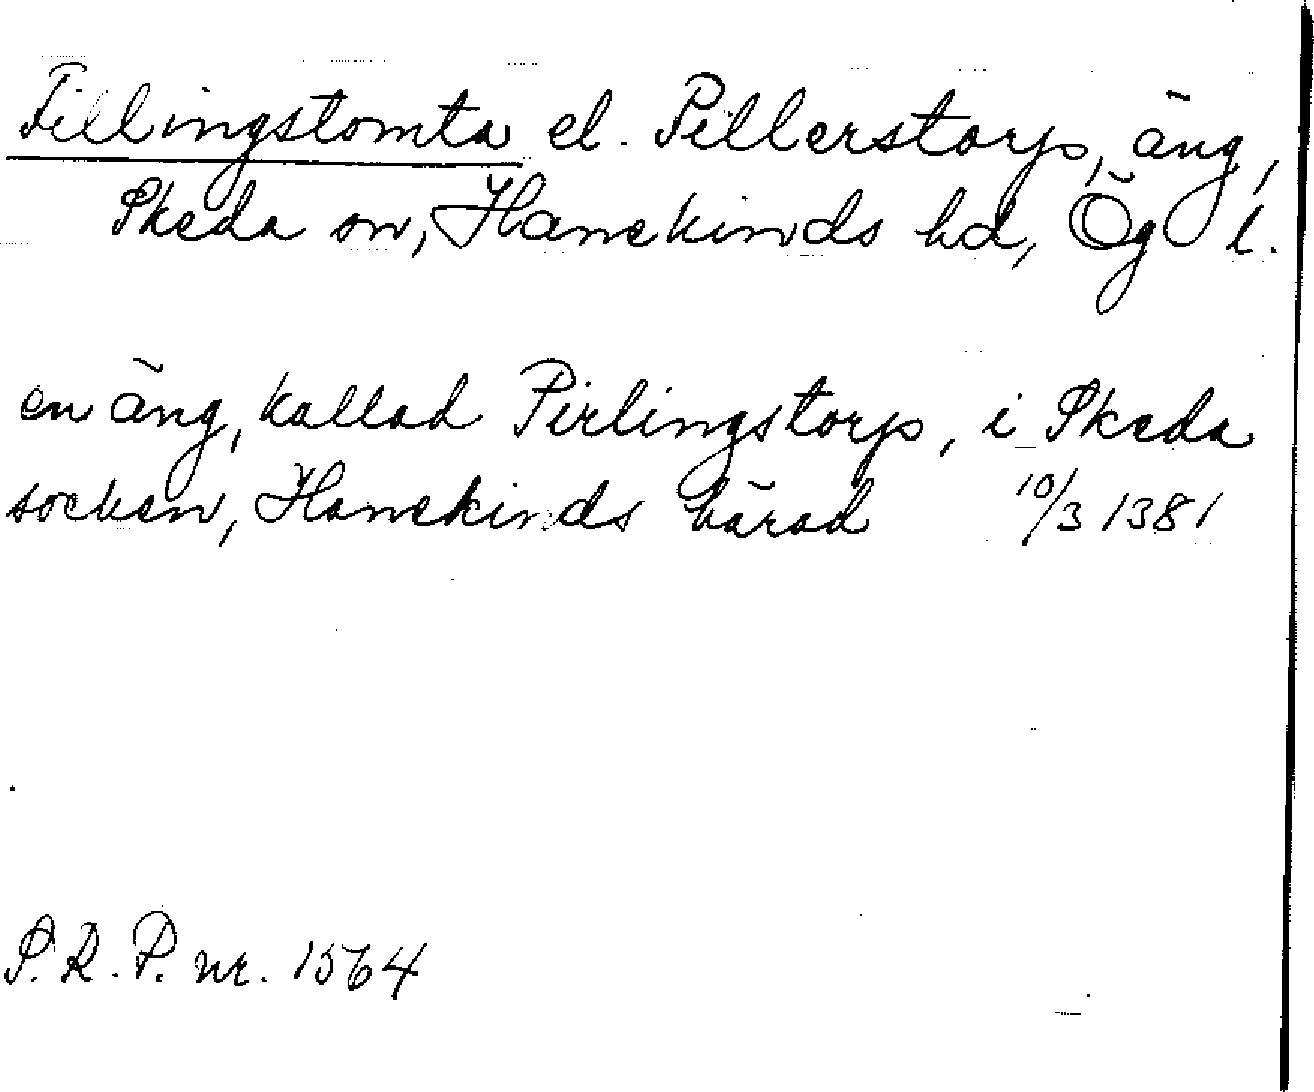 Pillingstomta el. Pillerstorp, äng,
Skeda sn, Hanekinds hd, Ög l.
en äng, kallad Pirlingstorp, i Skeda
socken, Hanekinds härad 10/3 1381
S.R.P. nr. 1564